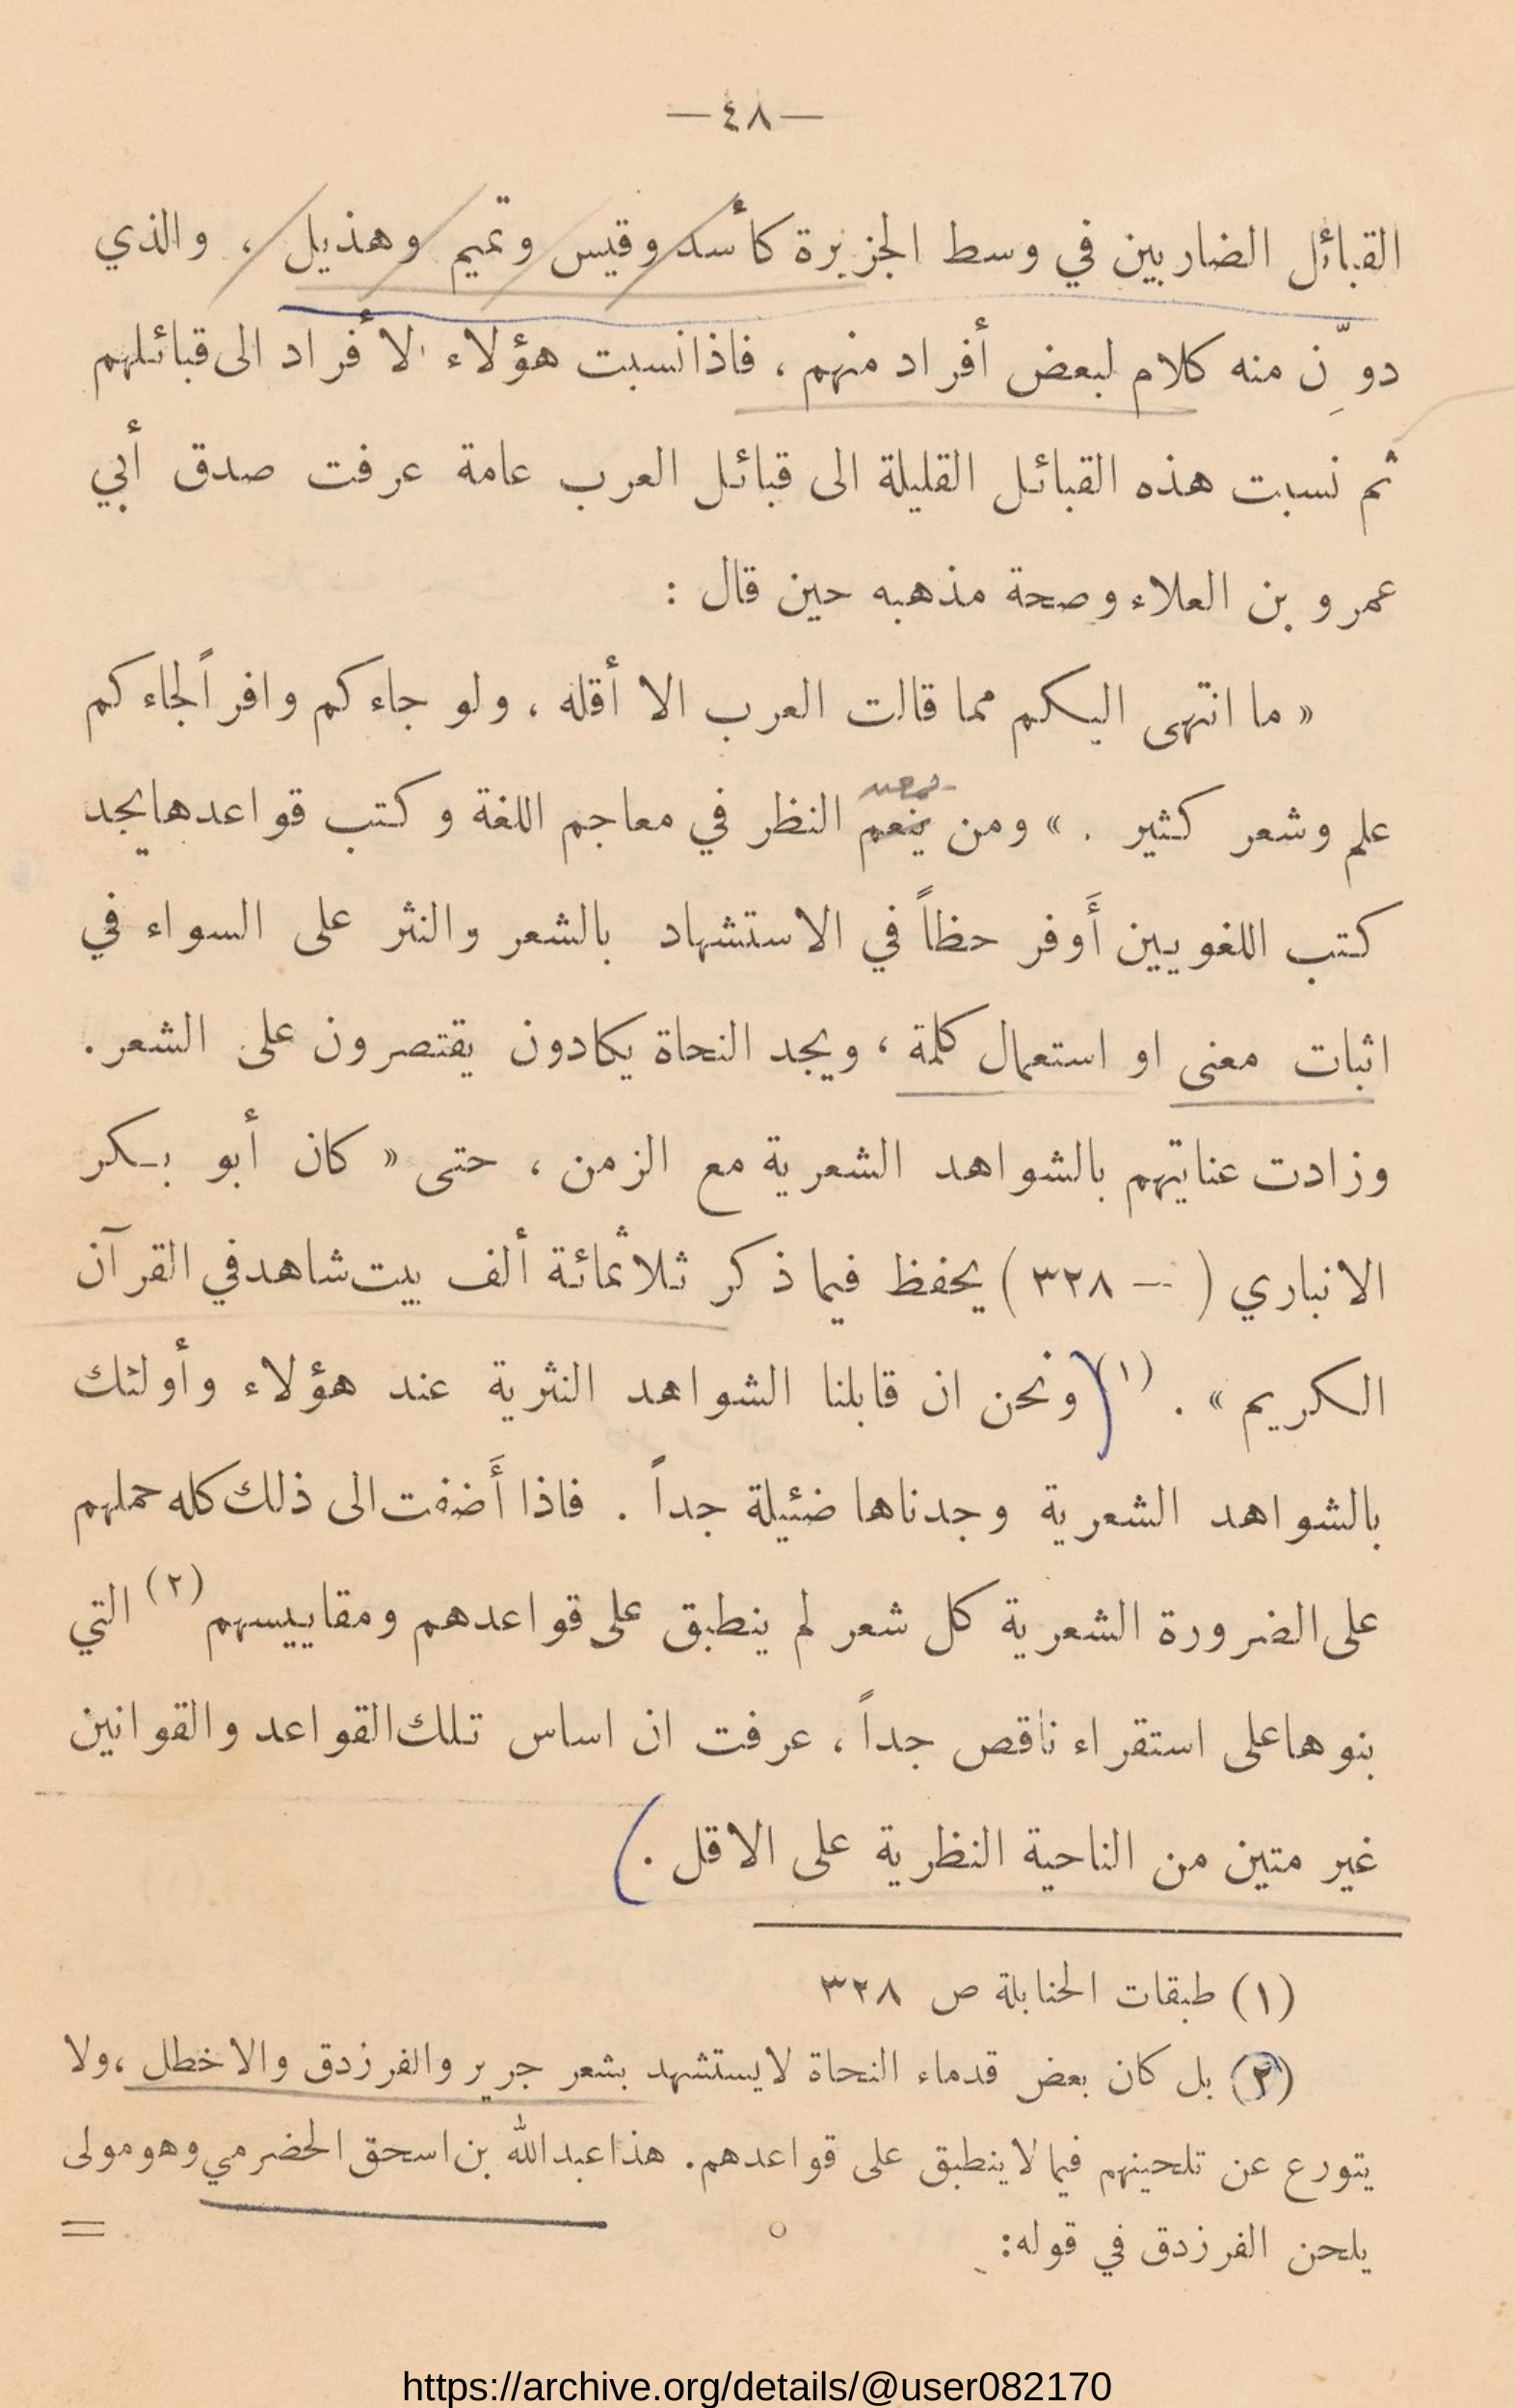 —٤٨—
القبائل الضاربين في وسط الجزيرة كأسد وقيس وتميم وهذيل ، والذي
دوِّن منه كلام لبعض أفراد منهم ، فاذا نسبت هؤلاء الأفراد الى قبائلهم
ثم نسبت هذه القبائل القليلة الى قبائل العرب عامة عرفت صدق أبي
عمرو بن العلاء وصحة مذهبه حين قال :
« ما انتهى اليكم مما قالت العرب الا أقله ، ولو جاءكم وافراً لجاءكم
علم وشعر كثير . » ومن ينعم النظر في معاجم اللغة وكتب قواعدها يجد
كتب اللغويين أَوفر حظاً في الاستشهاد بالشعر والنثر على السواء في
اثبات معنى او استعمال كلمة ، ويجد النحاة يكادون يقتصرون على الشعر .
وزادت عنايتهم بالشواهد الشعرية مع الزمن ، حتى « كان أبو بكر
الانباري ( — ٣٢٨ ) يحفظ فيما ذكر ثلاثمائة ألف بيت شاهد في القرآن
الكريم » . (١) ونحن ان قابلنا الشواهد النثرية عند هؤلاء وأولئك
بالشواهد الشعرية وجدناها ضئيلة جداً . فاذا أَضفت الى ذلك كله حملهم
على الضرورة الشعرية كل شعر لم ينطبق على قواعدهم ومقاييسهم (٢) التي
بنوها على استقراء ناقص جداً ، عرفت ان اساس تلك القواعد والقوانين
غير متين من الناحية النظرية على الاقل .
(١) طبقات الحنابلة ص ٣٢٨
(٢) بل كان بعض قدماء النحاة لا يستشهد بشعر جرير والفرزدق والاخطل ، ولا
يتورع عن تلحينهم فيما لا ينطبق على قواعدهم . هذا عبد الله بن اسحق الحضرمي وهو مولى
يلحن الفرزدق في قوله :
=
https://archive.org/details/@user082170